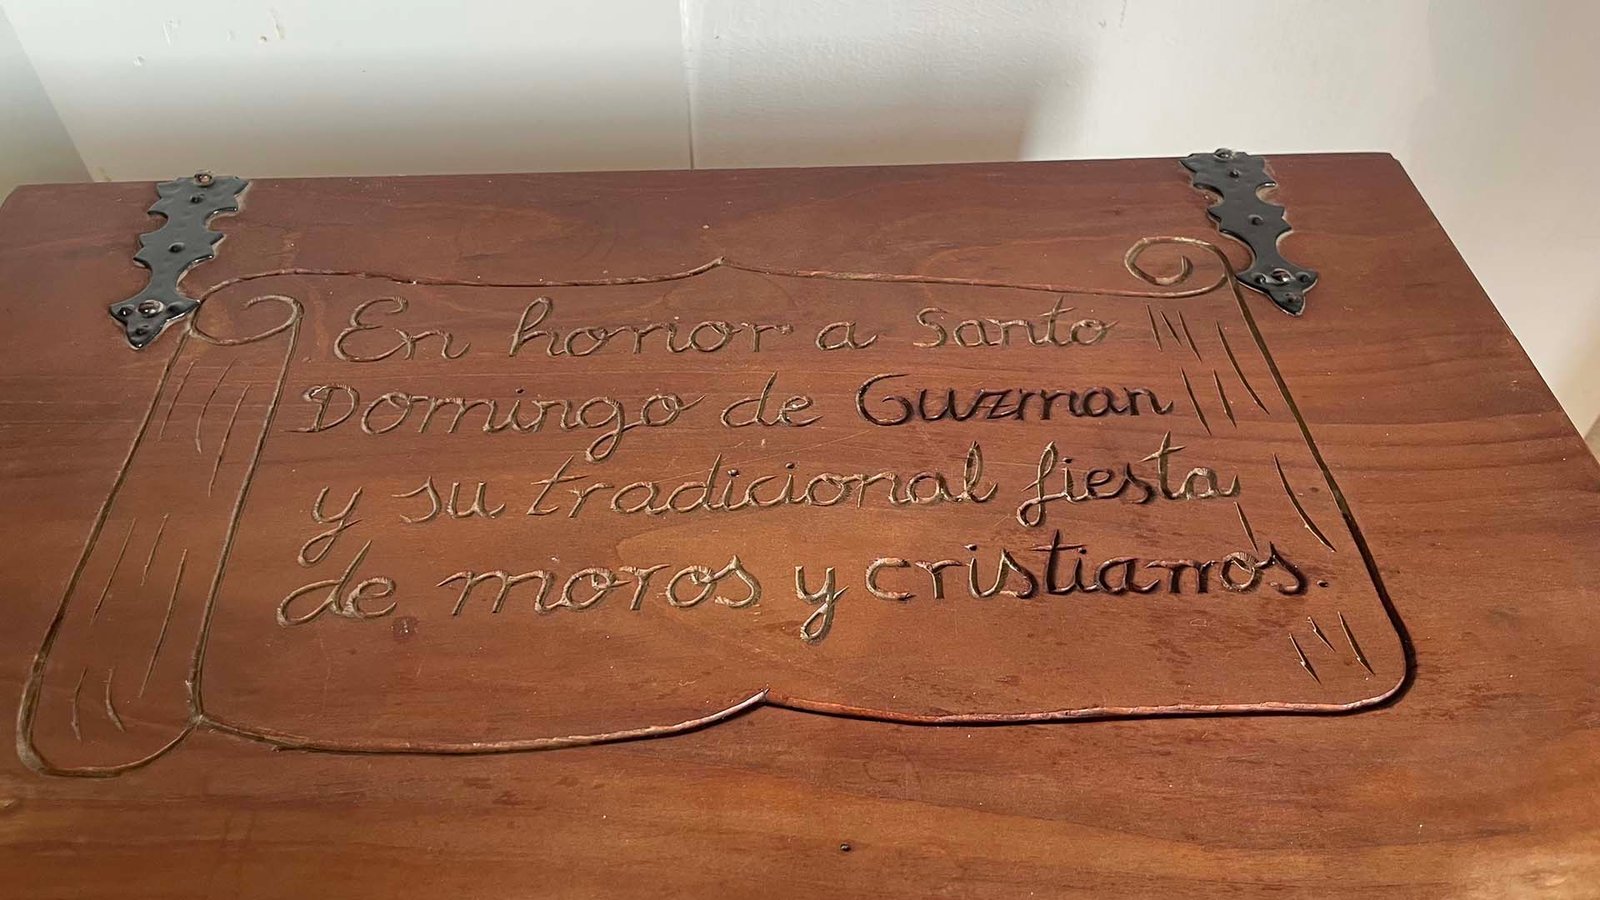 En honor a Santo
Domingo de Guzman
y su tradicional fiesta
de moros y cristianos.